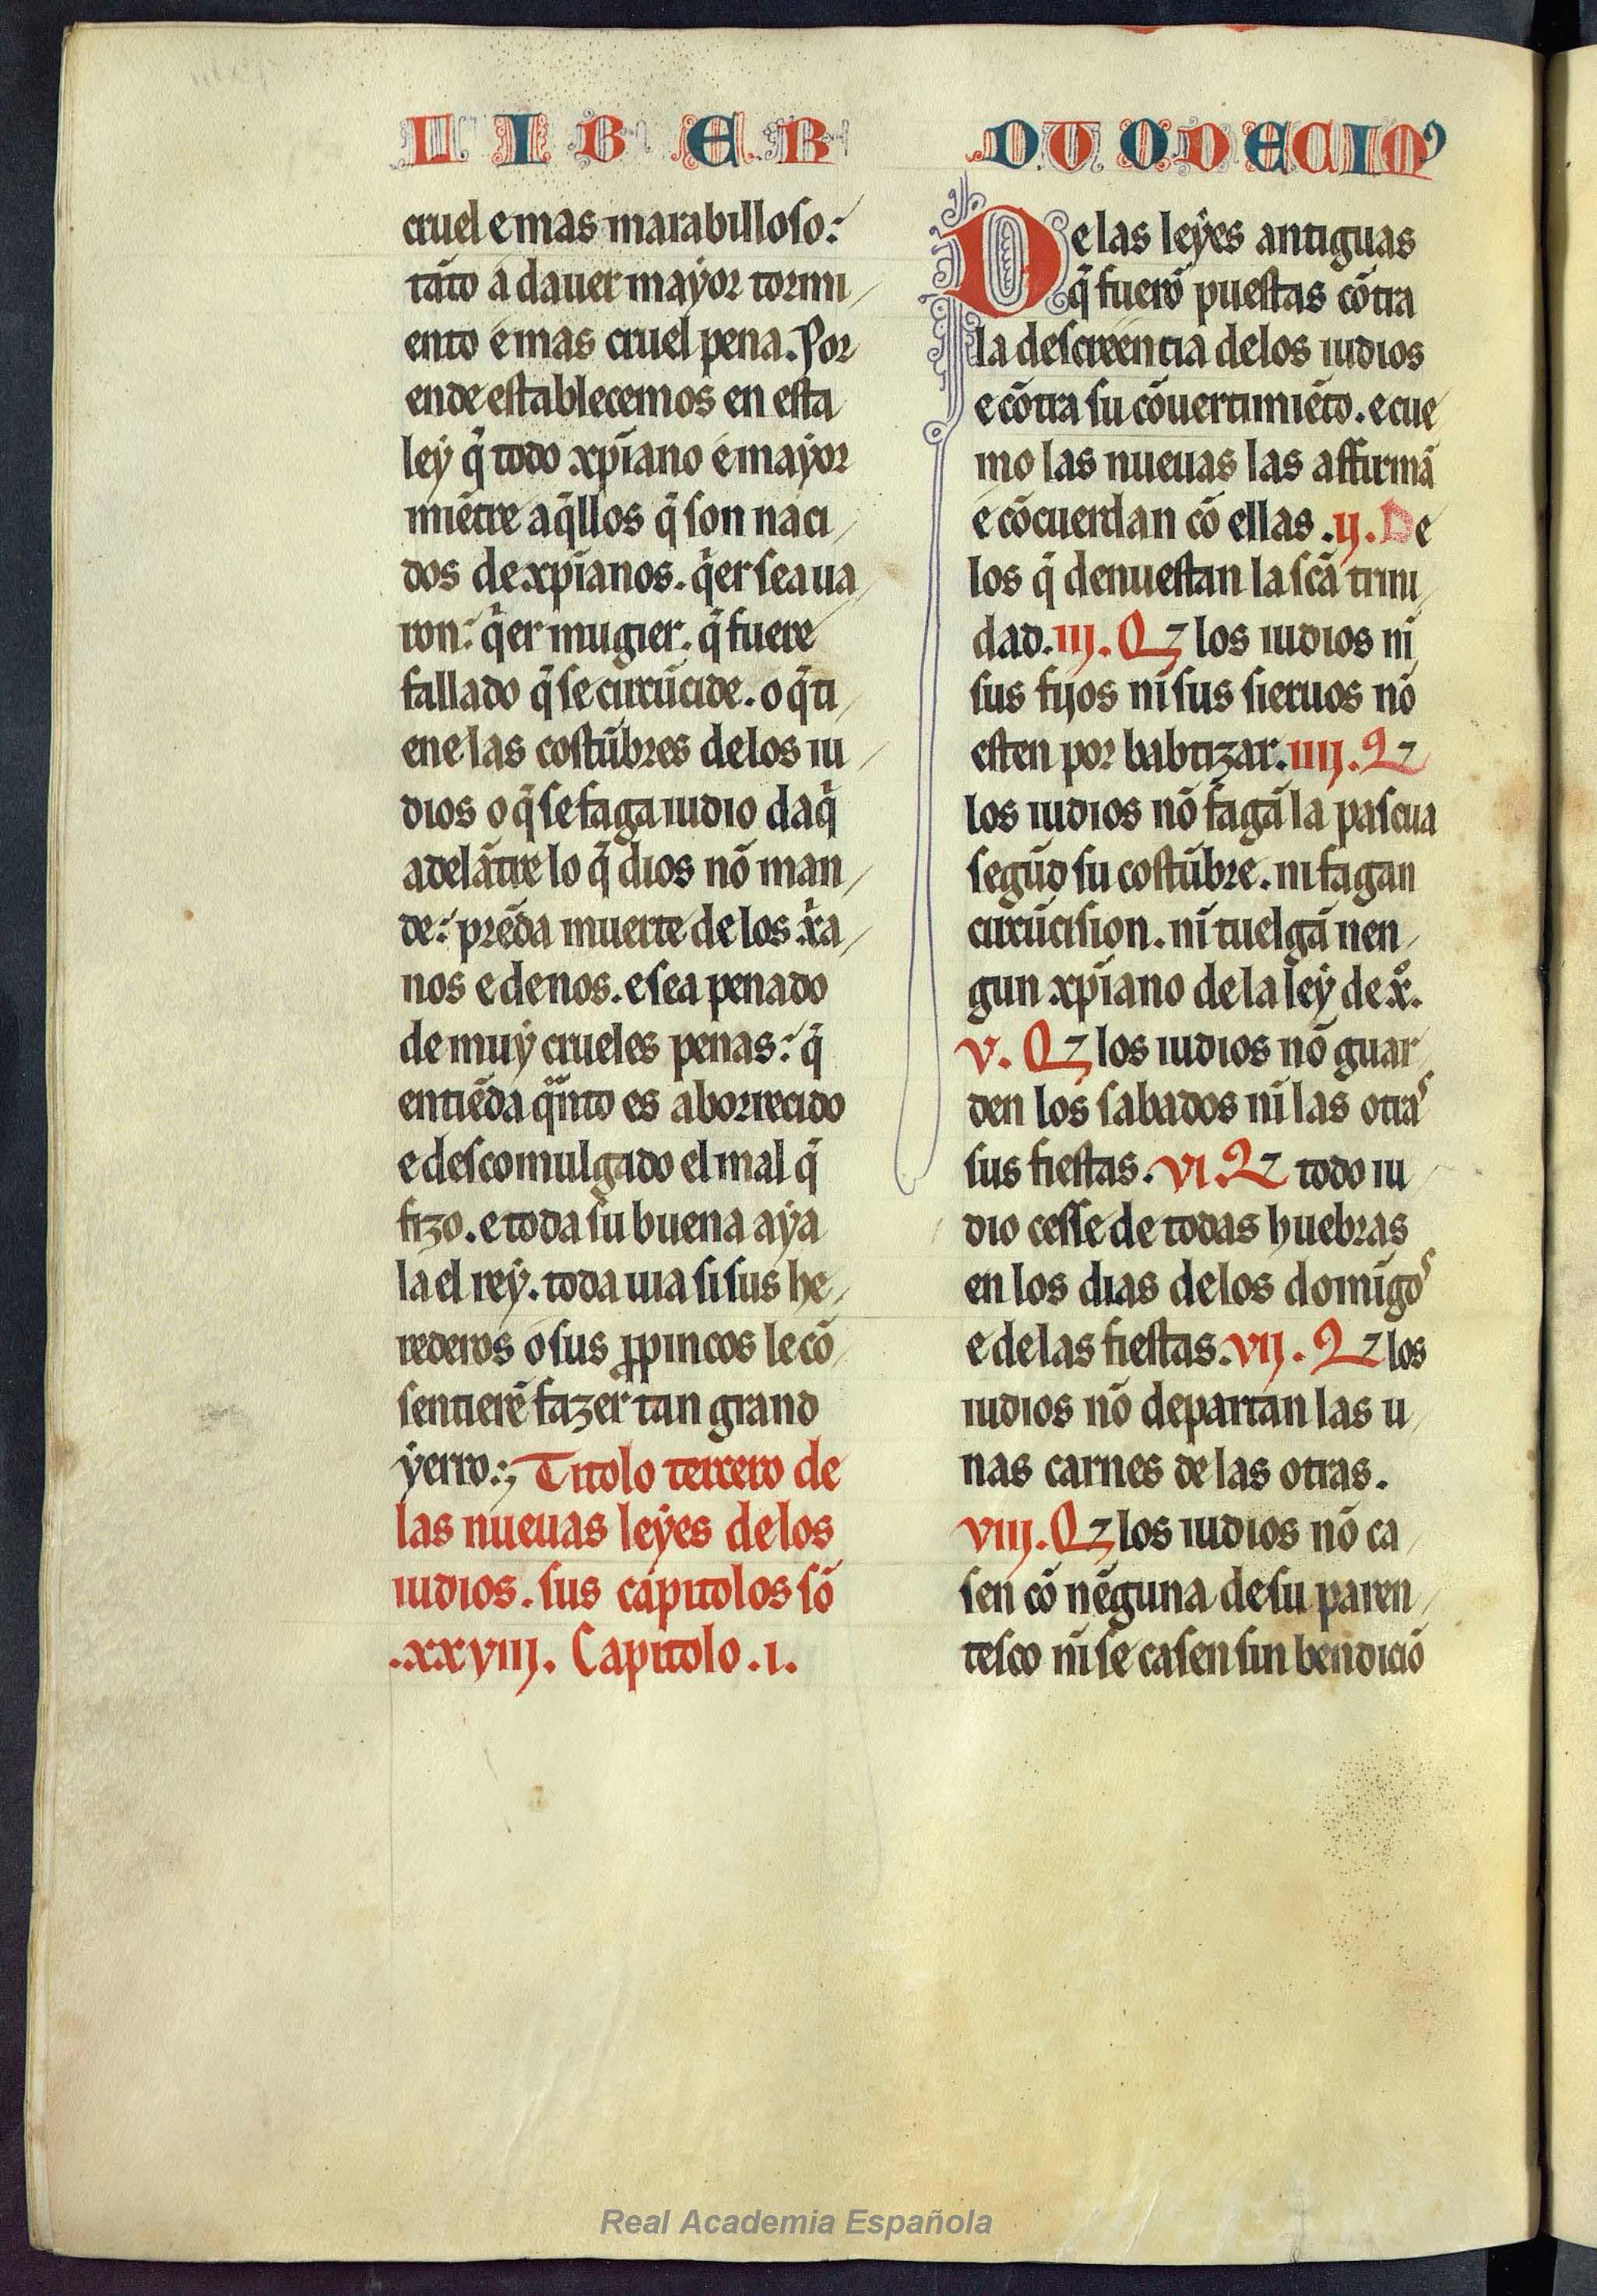 LIBER DUODECIMꝰ
cruel e mas marabilloso:
tãto a dauer mayor tormi
ento e mas cruel pena. Por
ende establecemos en esta
ley q̃ todo xp̃iano e mayor
miẽtre aq̃llos q̃ son naci
dos de xp̃ianos. q̃er sea ua
ron: q̃er mugier. q̃ fuere
fallado q̃ se circũcide. o q̃ ti
ene las costũbres de los iu
dios o q̃ se faga iudio daq̃
adelãtre lo q̃ dios nõ man
de: prẽda muerte de los xr̃a
nos e de nos. e sea penado
de muy crueles penas: q̃
entiẽda q̃nto es aborrecido
e descomulgado el mal q̃
fizo. e toda su buena aya
la el rey. toda uia si sus he
rederos o sus ꝓpincos le cõ
sentierẽ fazer tan grand
yerro:, Titolo tercero de
las nueuas leyes de los
iudios. sus capitolos sõ
.xxviij. Capitolo .i.
De las leyes antiguas
q̃ fuerõ puestas cõtra
la descreencia de los iudios
e cõtra su cõuertimiẽto. e cue
mo las nueuas las affirmã
e cõcuerdan cõ ellas .ij. De
los q̃ denuestan la sc̃a trini
dad. iij. Qz los iudios ni
sus fijos ni sus sieruos nõ
esten por babtizar. iiij. Qz
los iudios nõ fagã la pascua
segũd su costũbre. ni fagan
circũcision. ni tuelgã nen
gun xp̃iano de la ley de xº.
v. Qz los iudios nõ guar
den los sabados ni las otras
sus fiestas. vi. Qz todo iu
dio cesse de todas huebras
en los dias de los domĩgos
e de las fiestas. vij. Qz los
iudios nõ departan las u
nas carnes de las otras.
viij. Qz los iudios nõ ca
sen cõ nẽguna de su paren
tesco ni se casen sin bendiciõ
Real Academia Española